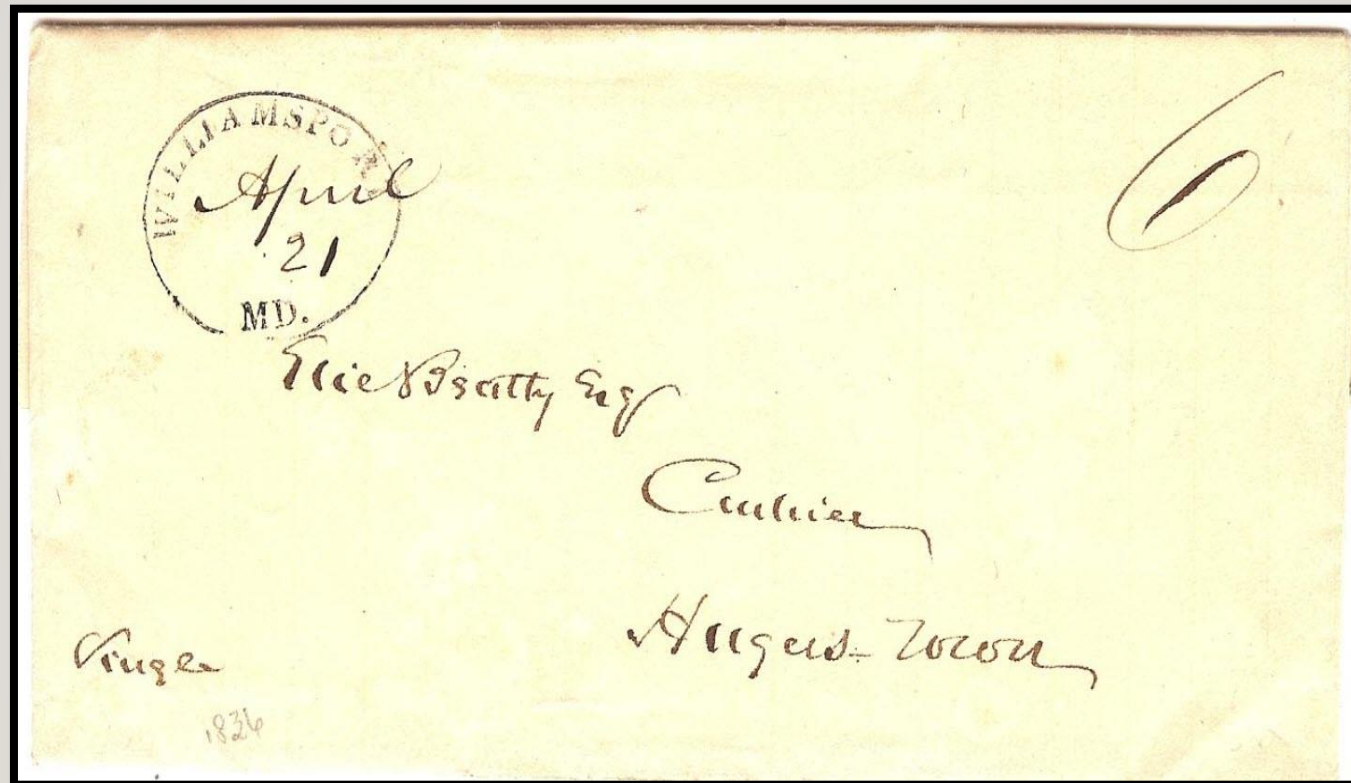 WILLIAMSPORT
April
21
MD.
6
Elie Beatty Esq
Cashier
Hagers-Town
Single
1836